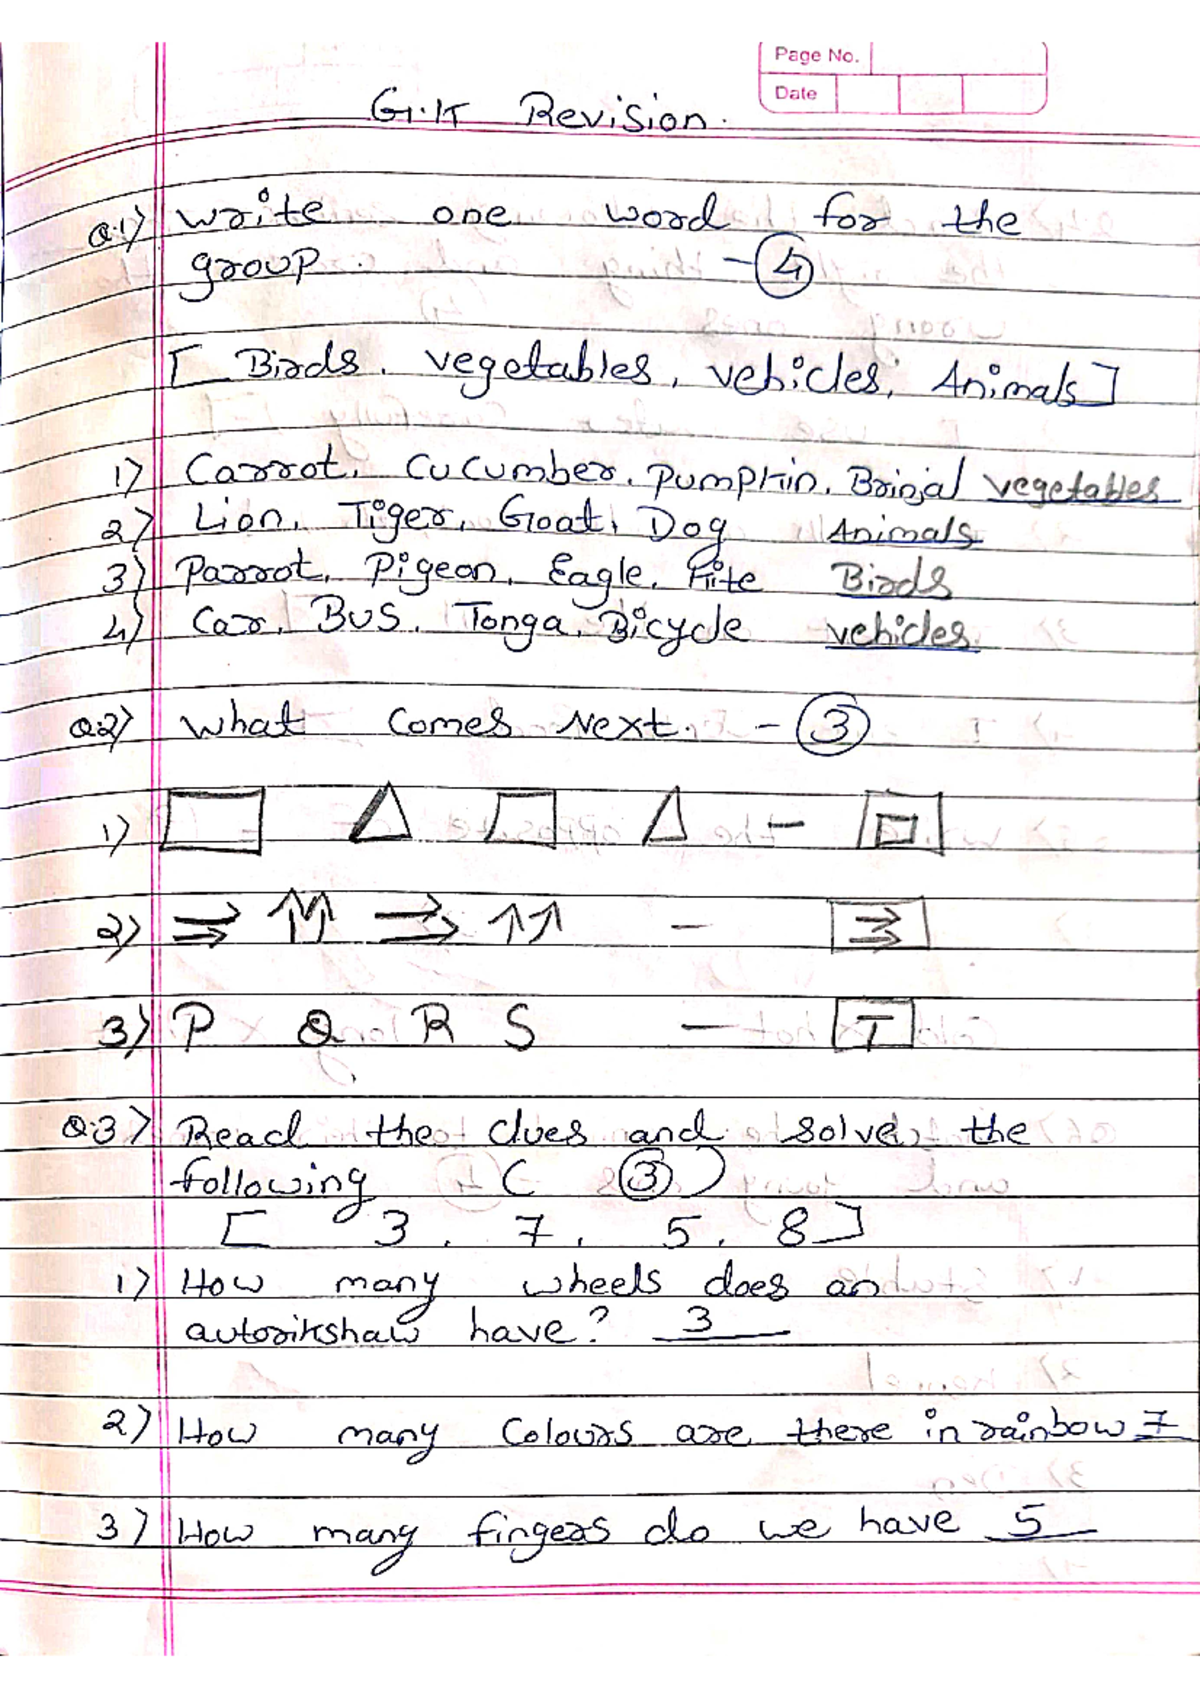 Page No.
Date
G.K Revision.
Q.1) write one word for the
group. - 4
[ Birds, vegetables, vehicles, Animals ]
1) Carrot, Cucumber, Pumpkin, Brinjal vegetables
2) Lion, Tiger, Goat, Dog Animals
3) Parrot, Pigeon, Eagle, Kite Birds
4) Car, Bus, Tonga, Bicycle vehicles
Q.2) What comes Next. - 3
1) -
2) -
3) P Q R S - T
Q.3) Read the clues and solve the
following ( 3 )
[ 3, 7, 5, 8 ]
1) How many wheels does an
autorikshaw have? 3
2) How many Colours are there in rainbow 7
3) How many fingers do we have 5